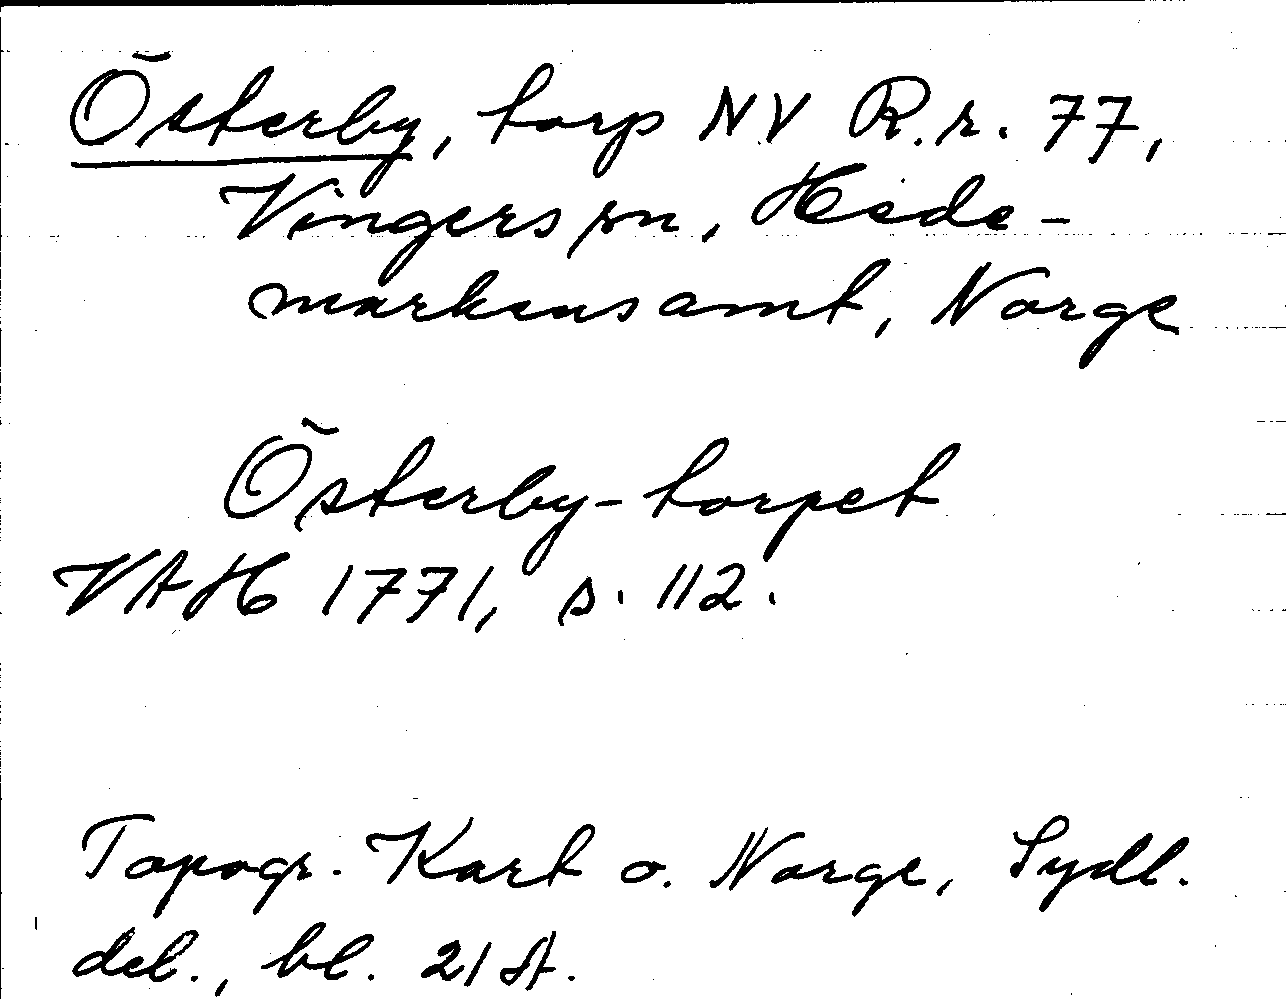 Österby, torp NV R.r. 77,
Vingers sn, Hede-
markens amt, Norge
Österby-torpet
VAH 1771, s. 112.
Topogr. Kart o. Norge, Sydl.
del., bl. 21 A.